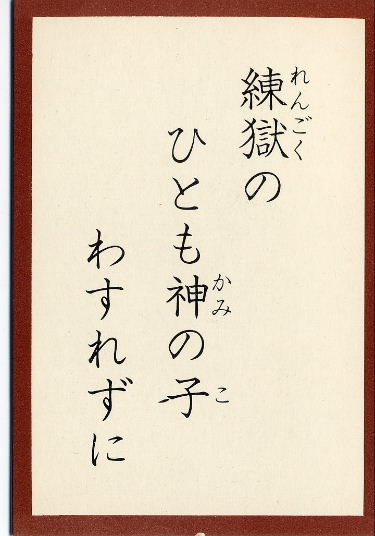 練獄の
ひとも神の子
わすれずに
れんごく
かみ
こ